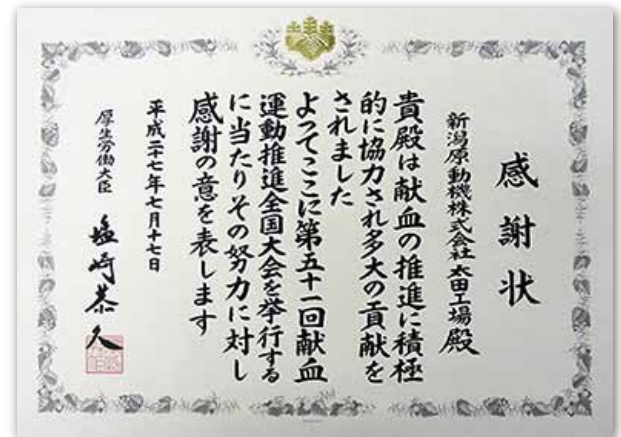 感謝状
新潟原動機株式会社 太田工場 殿
貴殿は献血の推進に積極
的に協力され多大の貢献を
されました
よってここに第五十一回献血
運動推進全国大会を挙行する
に当たりその努力に対し
感謝の意を表します
平成二十七年七月十七日
厚生労働大臣 塩崎恭久